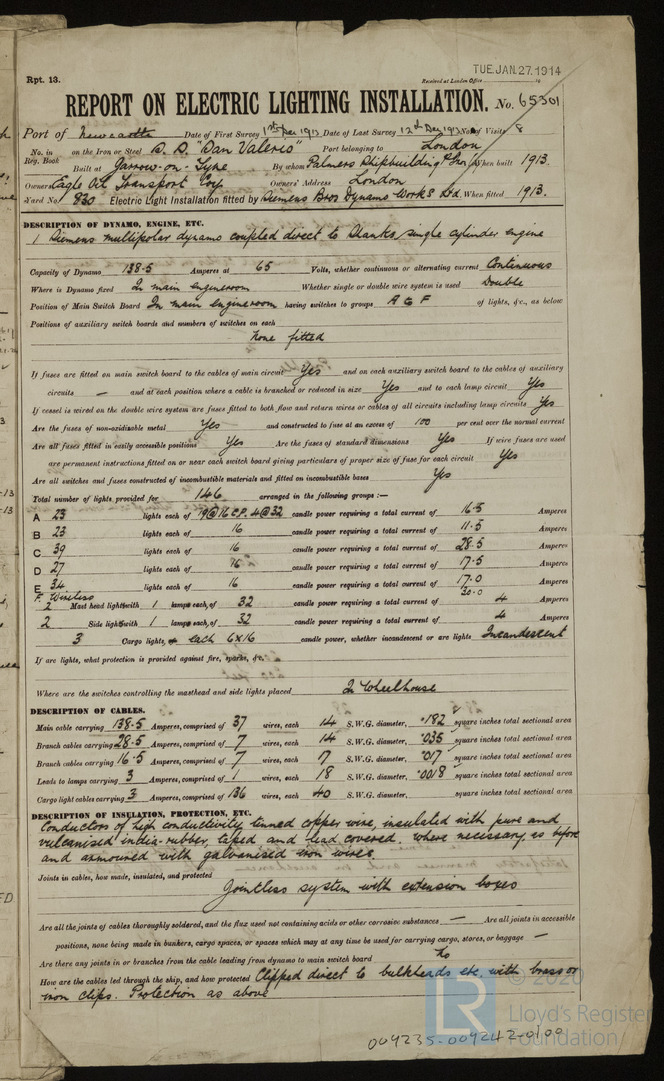 TUE. JAN. 27. 1914
Rpt. 13. Received at London Office 19
REPORT ON ELECTRIC LIGHTING INSTALLATION. No. 65301
Port of Newcastle Date of First Survey 1st Dec 1913 Date of Last Survey 12th Dec 1913 No. of Visits 8
No. in Reg. Book on the Iron or Steel S.S. "San Valerio" Port belonging to London
Built at Jarrow-on-Tyne By whom Palmers Shipbuilding When built 1913.
Owners Eagle Oil Transport Coy Owners' Address London
Yard No. 830 Electric Light Installation fitted by Siemens Bros Dynamo Works Ltd. When fitted 1913.
DESCRIPTION OF DYNAMO, ENGINE, ETC.
1 Siemens multipolar dynamo coupled direct to Shanks single cylinder engine
Capacity of Dynamo 138.5 Amperes at 65 Volts, whether continuous or alternating current Continuous
Where is Dynamo fixed In main engineroom Whether single or double wire system is used Double
Position of Main Switch Board In main engineroom having switches to groups A to F of lights, &c., as below
Positions of auxiliary switch boards and numbers of switches on each
None fitted
If fuses are fitted on main switch board to the cables of main circuit Yes and on each auxiliary switch board to the cables of auxiliary
circuits — and at each position where a cable is branched or reduced in size Yes and to each lamp circuit Yes
If vessel is wired on the double wire system are fuses fitted to both flow and return wires or cables of all circuits including lamp circuits Yes
Are the fuses of non-oxidizable metal Yes and constructed to fuse at an excess of 100 per cent over the normal current
Are all fuses fitted in easily accessible positions Yes Are the fuses of standard dimensions Yes If wire fuses are used
are permanent instructions fitted on or near each switch board giving particulars of proper size of fuse for each circuit Yes
Are all switches and fuses constructed of incombustible materials and fitted on incombustible bases Yes
Total number of lights provided for 146 arranged in the following groups :—
A 23 lights each of 19@16 C.P. 4@32 candle power requiring a total current of 16.5 Amperes
B 23 lights each of 16 candle power requiring a total current of 11.5 Amperes
C 39 lights each of 16 candle power requiring a total current of 28.5 Amperes
D 27 lights each of 16 candle power requiring a total current of 17.5 Amperes
E 34 lights each of 16 candle power requiring a total current of 17.0 Amperes
F. Wireless 30.0
2 Mast head light with 1 lamps each, of 32 candle power requiring a total current of 4 Amperes
2 Side light with 1 lamps each, of 32 candle power requiring a total current of 4 Amperes
3 Cargo lights, of each 6x16 candle power, whether incandescent or arc lights Incandescent
If arc lights, what protection is provided against fire, sparks, &c.
Where are the switches controlling the masthead and side lights placed In Wheelhouse
DESCRIPTION OF CABLES.
Main cable carrying 138.5 Amperes, comprised of 37 wires, each 14 S.W.G. diameter, .182 square inches total sectional area
Branch cables carrying 28.5 Amperes, comprised of 7 wires, each 14 S.W.G. diameter, .035 square inches total sectional area
Branch cables carrying 16.5 Amperes, comprised of 7 wires, each 17 S.W.G. diameter, .017 square inches total sectional area
Leads to lamps carrying 3 Amperes, comprised of 1 wires, each 18 S.W.G. diameter, .0018 square inches total sectional area
Cargo light cables carrying 3 Amperes, comprised of 136 wires, each 40 S.W.G. diameter, square inches total sectional area
DESCRIPTION OF INSULATION, PROTECTION, ETC.
Conductors of high conductivity tinned copper wire, insulated with pure and
vulcanised india-rubber, taped and lead covered. where necessary, as before
and armoured with galvanised iron wires.
Joints in cables, how made, insulated, and protected
Jointless system with extension boxes
Are all the joints of cables thoroughly soldered, and the flux used not containing acids or other corrosive substances — Are all joints in accessible
positions, none being made in bunkers, cargo spaces, or spaces which may at any time be used for carrying cargo, stores, or baggage —
Are there any joints in or branches from the cable leading from dynamo to main switch board No
How are the cables led through the ship, and how protected Clipped direct to bulkheads etc. with brass or
iron clips. Protection as above
© 2020
LR Lloyd's Register
Foundation
004235-004242-0100